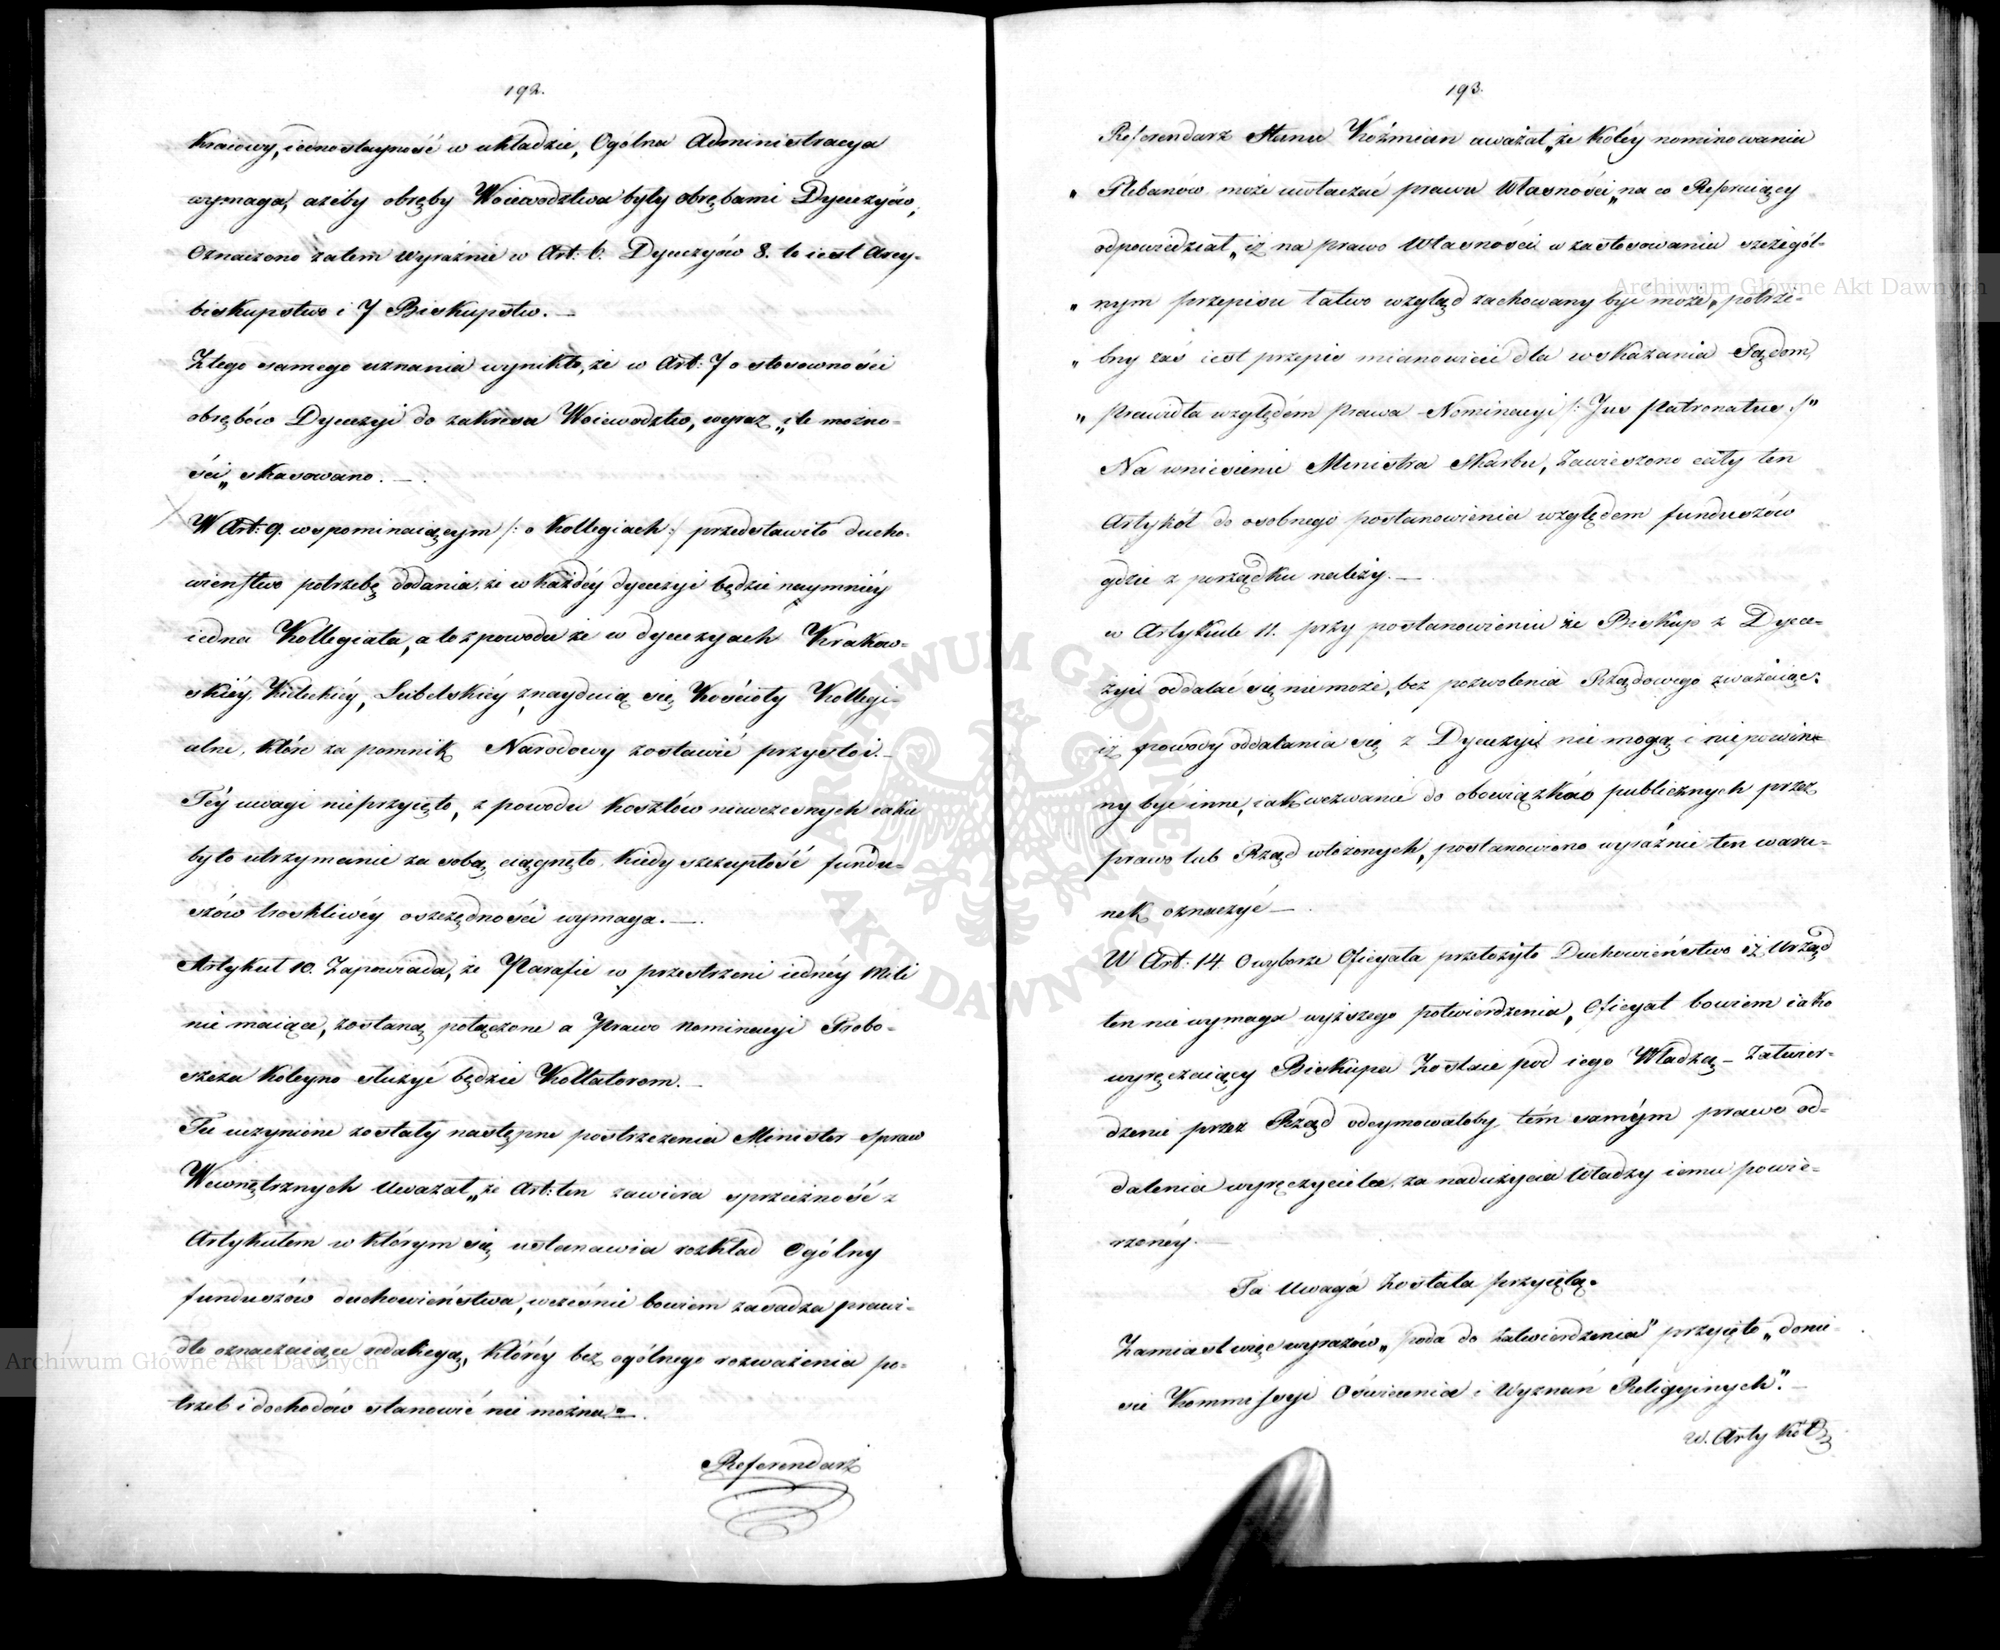 192.
Kraiowy, iednostayność w układzie, Ogólna Administracya
wymaga, ażeby obręby Woiewodztwa były obrębami Dyecezyów,
Oznaczono zatem wyraźnie w Art: 6. Dyecezyów 8. to iest Arcy-
biskupstwo i 7 Biskupstw. —
Z tego samego uznania wynikło, że w Art: 7 o stosowności
obrębów Dyecezyi do zakresu Woiewodztw, wyraz „ile możno-
ści„ skasowano. —.
W Art: 9. wspominaiącym /: o Kollegiach :/ przedstawiło ducho-
wieństwo potrzebę dodania, że w każdéy dyecezyi będzie naymniéy
iedna Kollegiata, a to z powodu że w dyecezyach Krakow-
skiéy, Kieleckiéy, Lubelskiéy znayduią się Kościoły Kollegi-
alne, które za pomnik Narodowy zostawić przystoi. —
Téy uwagi nieprzyięto, z powodu kosztów niewczesnych iakie
by to utrzymanie za sobą ciągnęło, kiedy szczupłość fundu-
szów troskliwéy oszczędności wymaga. —.
Artykuł 10. Zapowiada, że Parafie w przestrzeni iednéy Mili
nie maiące, zostaną połączone a Prawo Nominacyi Probo-
szcza koleyno służyć będzie Kollatorom. —
Tu uczynione zostały następne postrzeżenia Minister Spraw
Wewnętrznych Uważał„ że Art: ten zawiera sprzeczność z
Artykułem w którym się ustanawia rozkład Ogólny
funduszów duchowieństwa, wcześnie bowiem zasadza prawi-
dło oznaczaiące redakcyą, któréy bez ogólnego rozważenia po-
trzeb i dochodów stanowić nie można —.
Referendarz
193.
Referendarz Stanu Koźmian uważał„ że koléy nominowania
„ Plebanów może uwłaczać prawu Własności„ na co Referuiący
odpowiedział„ iż na prawo Własności w zastosowaniu szczegól-
„ nym przepisu łatwo wzgląd zachowany być może, potrze-
„ bny zaś iest przepis mianowicie dla wskazania Sądom,
„ prawidła względem prawa Nominacyi /: Jus Patronatus :/"
Na wniesienie Ministra Skarbu, Zawieszono cały ten
Artykuł do osobnego postanowienia względem funduszów
gdzie z porządku należy. —
w Artykule 11. przy postanowieniu że Biskup z Dyece-
zyi oddalać się nie może, bez pozwolenia Rządowego zważaiąc
iż powody oddalania się z Dyecezyi nie mogą i nie powin-
ny być inne, iak wezwanie do obowiązków publicznych przez
prawo lub Rząd włożonych, postanowiono wyraźnie ten waru-
nek oznaczyć —.
W Art: 14. O wyborze Oficyała przełożyło Duchowieństwo iż Urząd
ten nie wymaga wyższego potwierdzenia, Oficyał bowiem iako
wyręczaiący Biskupa Zostaie pod iego Władzą — Zatwier-
dzenie przez Rząd odeymowałoby tém samém prawo od-
dalenia wyręczyciela, za nadużycia Władzy iemu powie-
rzonéy. —
Ta Uwaga Została przyięta.
Zamiast więc wyrazów„ poda do zatwierdzenia" przyięto „donie-
sie Kommissyi Oświecenia i Wyznań Religiynych". —
w. Artykół
Archiwum Główne Akt Dawnych
Archiwum Główne Akt Dawnych
ARCHIWUM GŁÓWNE AKT DAWNYCH